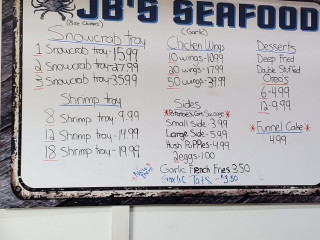 JB'S SEAFOOD
Snowcrab tray
1 Snowcrab tray-15.99
2 Snowcrab tray-27.99
3 Snowcrab tray-35.99
Shrimp tray
8 Shrimp tray-9.99
12 Shrimp tray-14.99
18 Shrimp tray-19.99
(Garlic)
Chicken Wings
10 wings-10.99
20 wings-17.99
50 wings-39.99
Sides
Small side 3.99
Large Side-5.99
Hush Puppies-4.99
2 eggs-1.00
Garlic French Fries 3.50
Garlic Tots - 3.50
Desserts
Deep Fried
Double Stuffed
Oreos
6-4.99
12-9.99
*Funnel Cake*
4.99